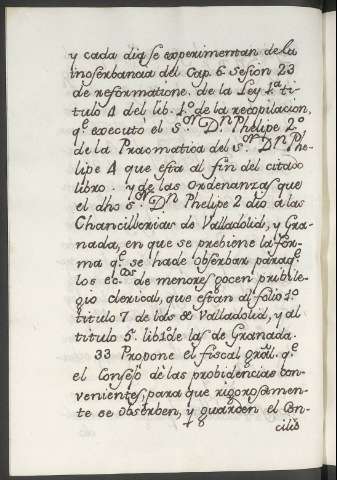 y cada dia se experimentan de la
inoserbancia del Cap. 6. Sesion 23
de reformatione. de la Ley 1ª. ti-
tulo 4 del lib. 1º. de la recopilacion,
qᵉ executó el Sᵒʳ. Dⁿ. Phelipe 2º
de la Pracmatica del Sᵒʳ. Dⁿ. Phe-
lipe 4 que esta al fin del citado
libro. y de las Ordenanzas que
el dho sᵒʳ. Dⁿ. Phelipe 2 dio á las
Chancillerias de Valladolid, y Gra-
nada, en que se prebiene la for-
ma qᵉ. se hade observar paraqᵉ.
los ecᶜᵒˢ. de menores gocen pribile-
gio clerical, que estan al folio 1º
titulo 7 de las de Valladolid, y al
titulo 5. lib 1º de las de Granada.
33 Propone el fiscal gràl. qᵉ.
el Consejo dè las probidencias con-
venientes, para que rigorosamen-
te se observen, y guarden el Con-
cilio